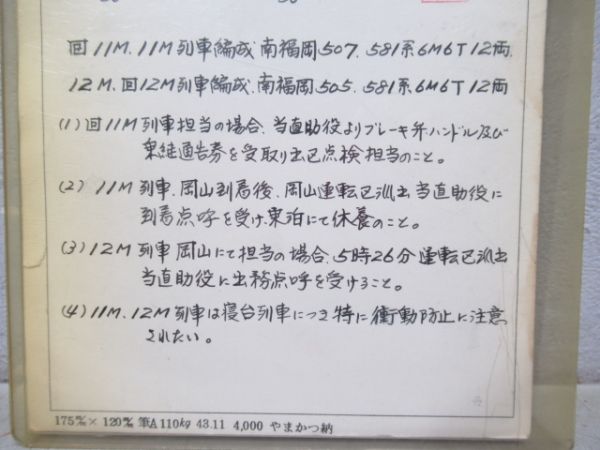 回11M.11M列車編成.南福岡507.581系6M6T12両.
12M.回12M列車編成.南福岡505.581系6M6T12両
(1)回11M列車担当の場合.当直助役よりブレーキ弁ハンドル及び
乗継通告券を受取り出区点検担当のこと。
(2) 11M列車.岡山到着後.岡山運転区派出当直助役に
到着点呼を受け.東泊にて休養のこと。
(3)12M列車岡山にて担当の場合.5時26分運転区派出
当直助役に出務点呼を受けること。
(4)11M.12M列車は寝台列車につき特に衝動防止に注意
されたい。
175㎜×120㎜ 筆A110kg 43.11 4,000 やまかつ納